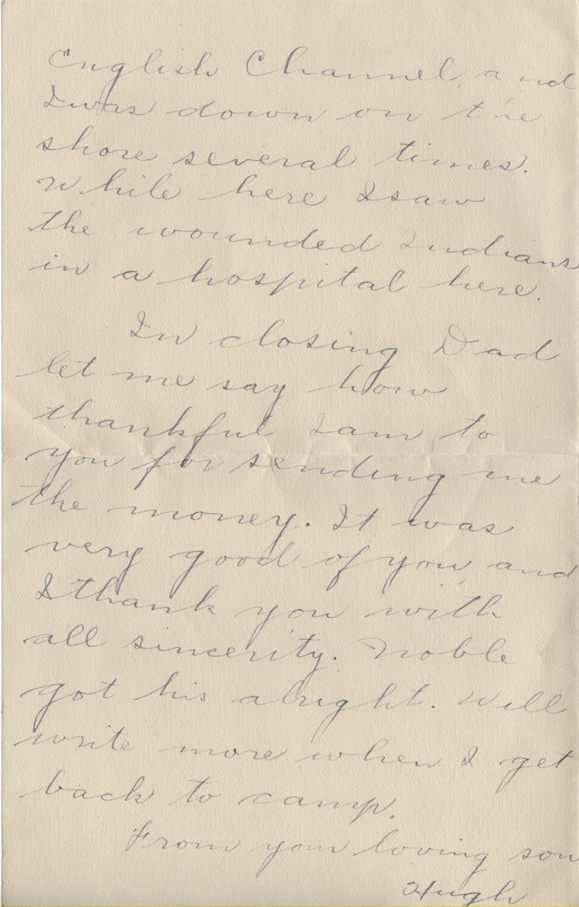 English Channel and
I was down on the
shore several times.
While here I saw
the wounded Indians
in a hospital here.
In closing Dad
let me say how
thankful I am to
you for sending me
the money. It was
very good of you and
I thank you with
all sincerity. Noble
got his alright. Will
write more when I get
back to camp.
From your loving son
Hugh